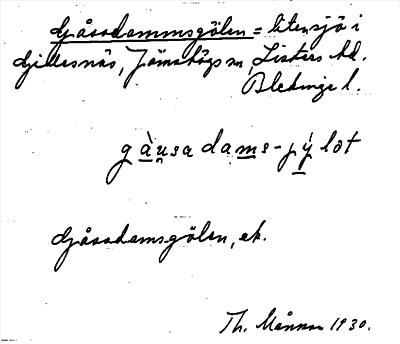 Gåsadammsgölen = liten sjö i
Gillesnäs, Jämshögs sn, Listers hd.
Blekinge l.
gàusa dams-pý lət
Gåsadamsgölen, ek.
Th. Månsson 1930.